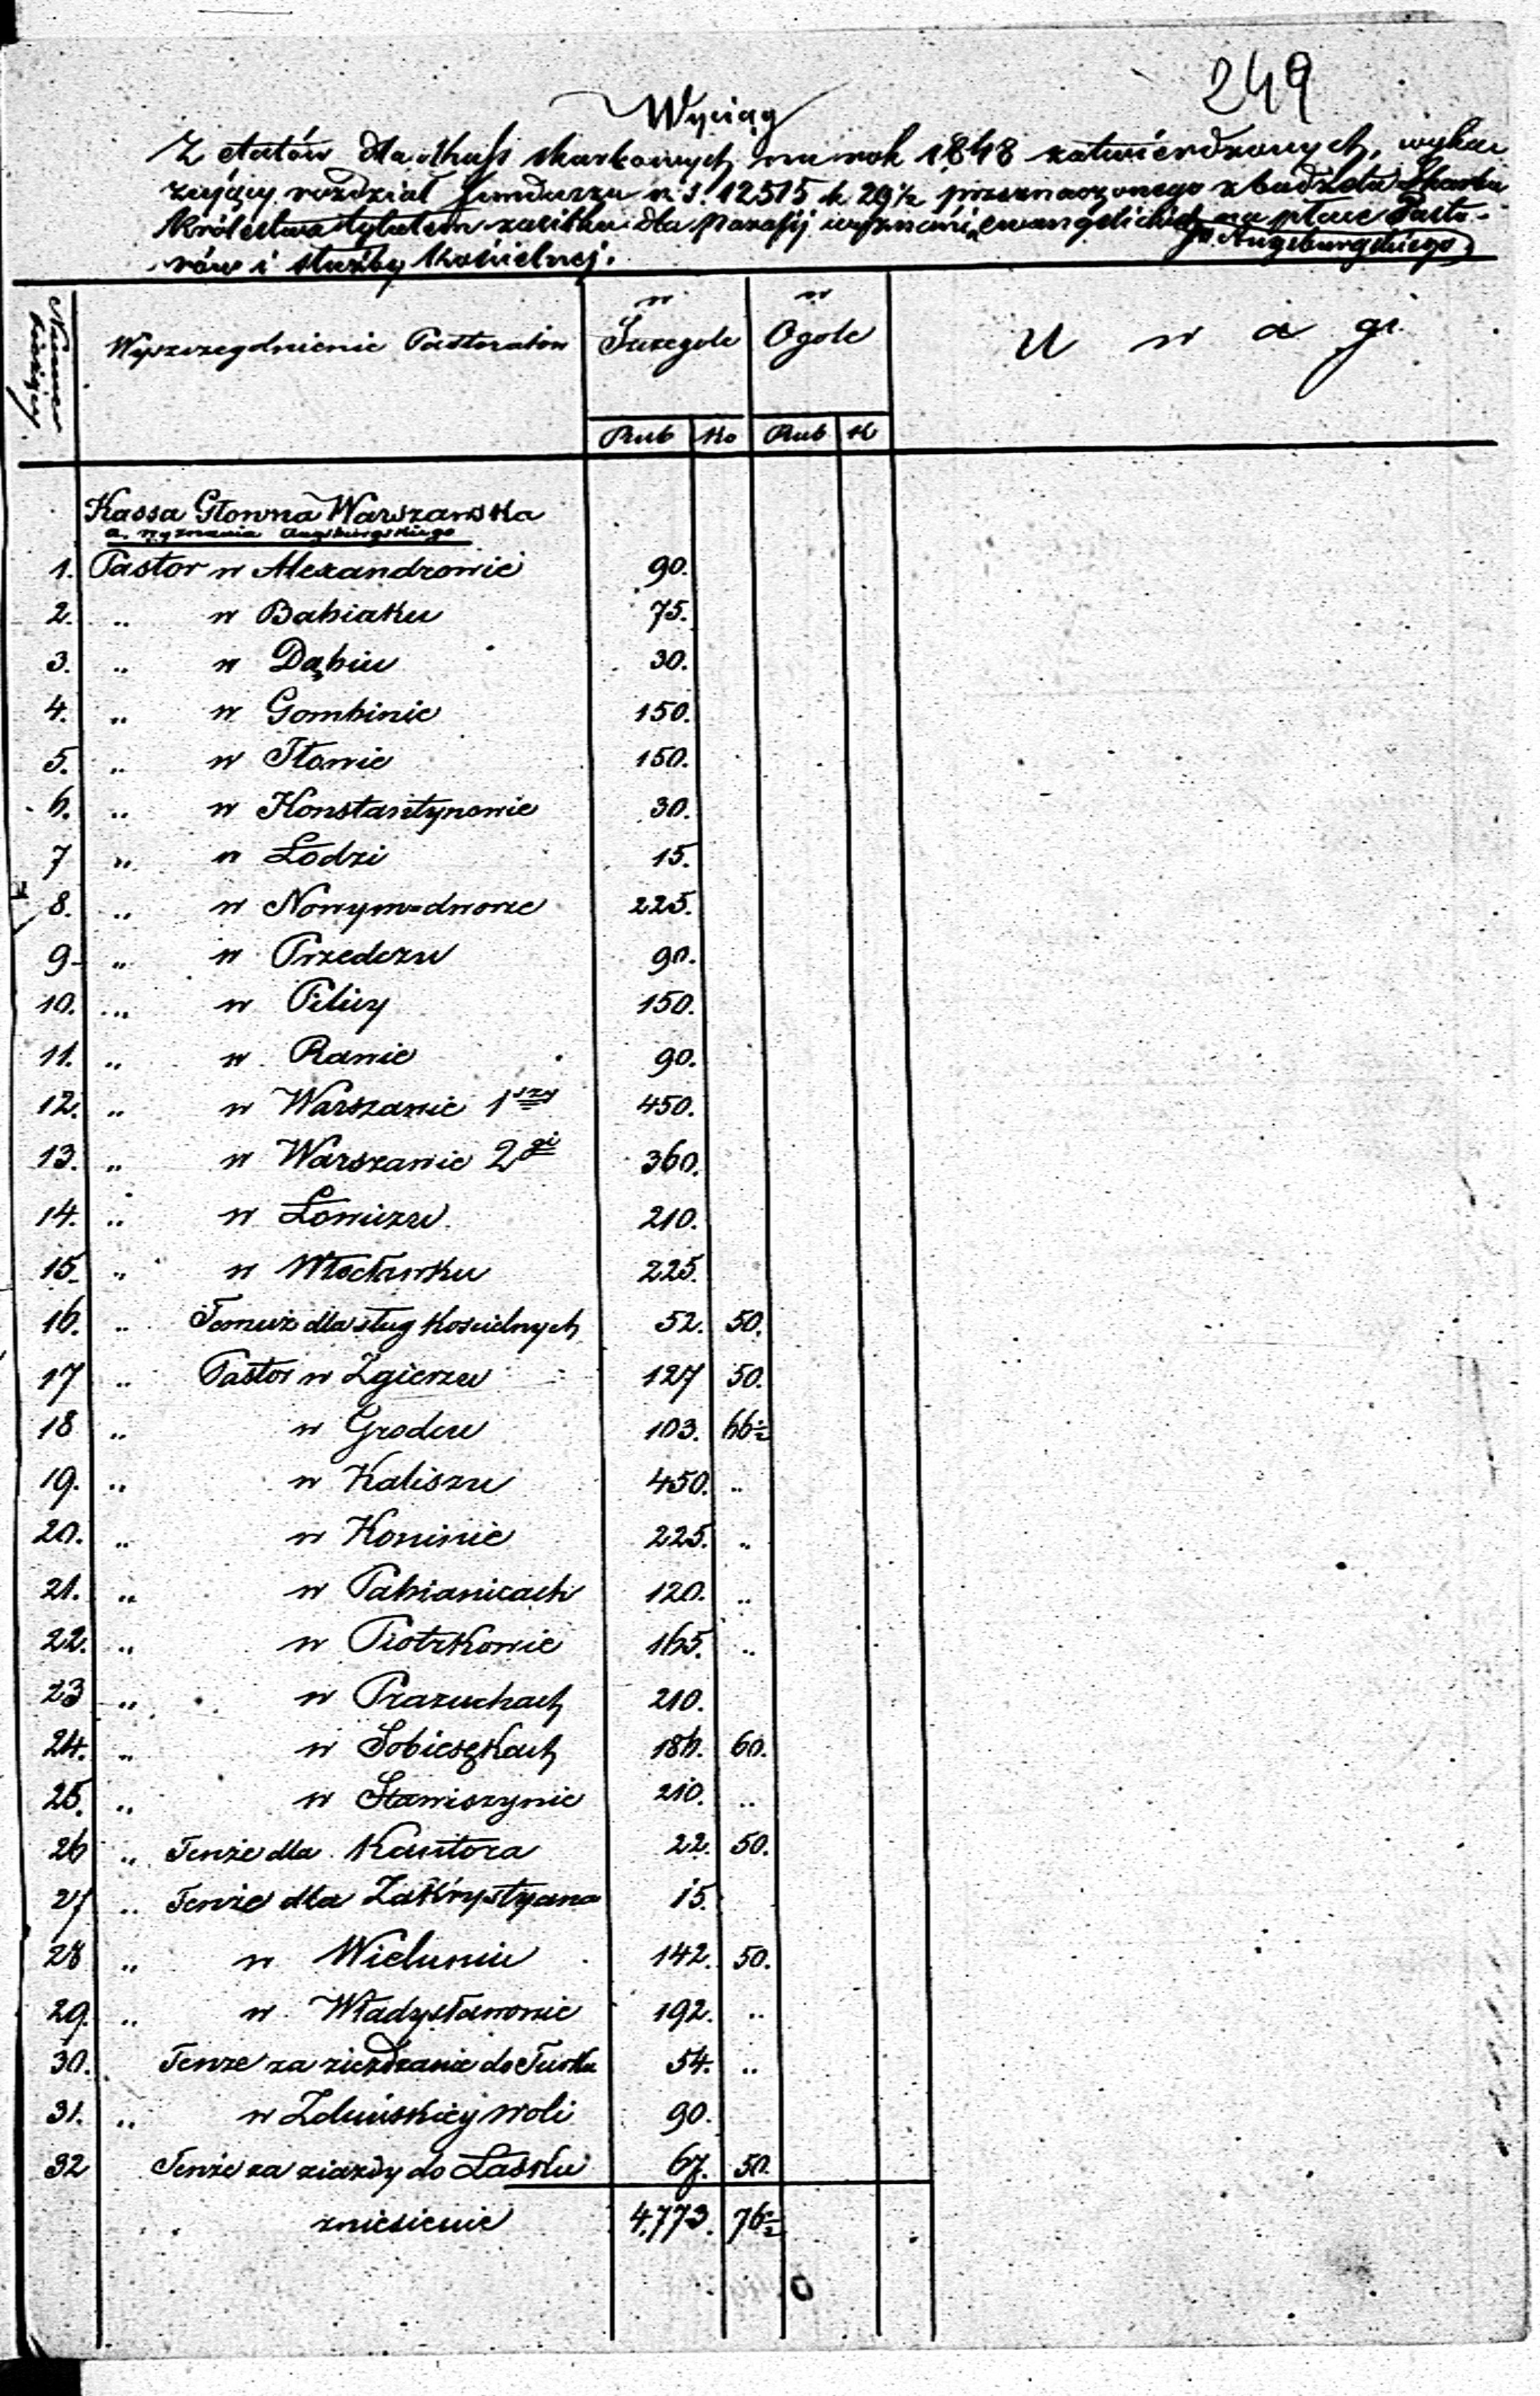 249
Wyciąg
Z etatów dla Kass skarbowych na rok 1848 zatwierdzonych, wyka
zujący rozdział funduszu rs. 12515 k 29½ przeznaczonego z budżetu Skarbu
Królestwa tytułem zasiłku dla parafij wyznań ewangelickich na płace Pasto-
Augsburgskiego
rów i służby Kościelnej.
Numer bieżący
Wyszczególnienie Pastoratów
w Szczegole
w Ogole
U w a gi
Rub Ko Rub K
Kassa Głowna Warszawska
a. Wyznania Augsburgskiego
1. Pastor w Alexandrowie 90.
2. „ w Babiaku 75.
3. „ w Dąbiu 30.
4. „ w Gombinie 150.
5. „ w Iłowie 150.
6. „ w Konstantynowie 30.
7 „ w Łodzi 15.
8. „ w Nowym=dworze 225.
9 „ w Przedczu 90.
10. „ w Pilicy 150.
11. „ w Rawie 90.
12. „ w Warszawie 1szy 450.
13. „ w Warszawie 2gi 360.
14. „ w Łowiczu 210.
15. „ w Włocławku 225.
16. „ Tamuż dla sług Kościelnych 52. 50.
17 „ Pastor w Zgierzu 127 50.
18 „ w Grodcu 103. 66½
19. „ w Kaliszu 450. „
20. „ w Koninie 225. „
21. „ w Pabianicach 120. „
22. „ w Piotrkowie 165. „
23 „ w Prazuchach 210.
24. „ w Sobiesękach 186. 60.
25. „ w Stawiszynie 210. „
26 „ Tenże dla Kantora 22. 50.
27 „ Tenże dla Zakrystyana 15.
28 „ w Wieluniu 142. 50.
29. „ w Władysławowie 192. „
30. Tenże za zieżdżanie do Turku 54. „
31. „ w Zduńskiey woli 90.
32 Tenże za ziazdy do Łasku 67. 50.
zniesienie 4,773. 76½